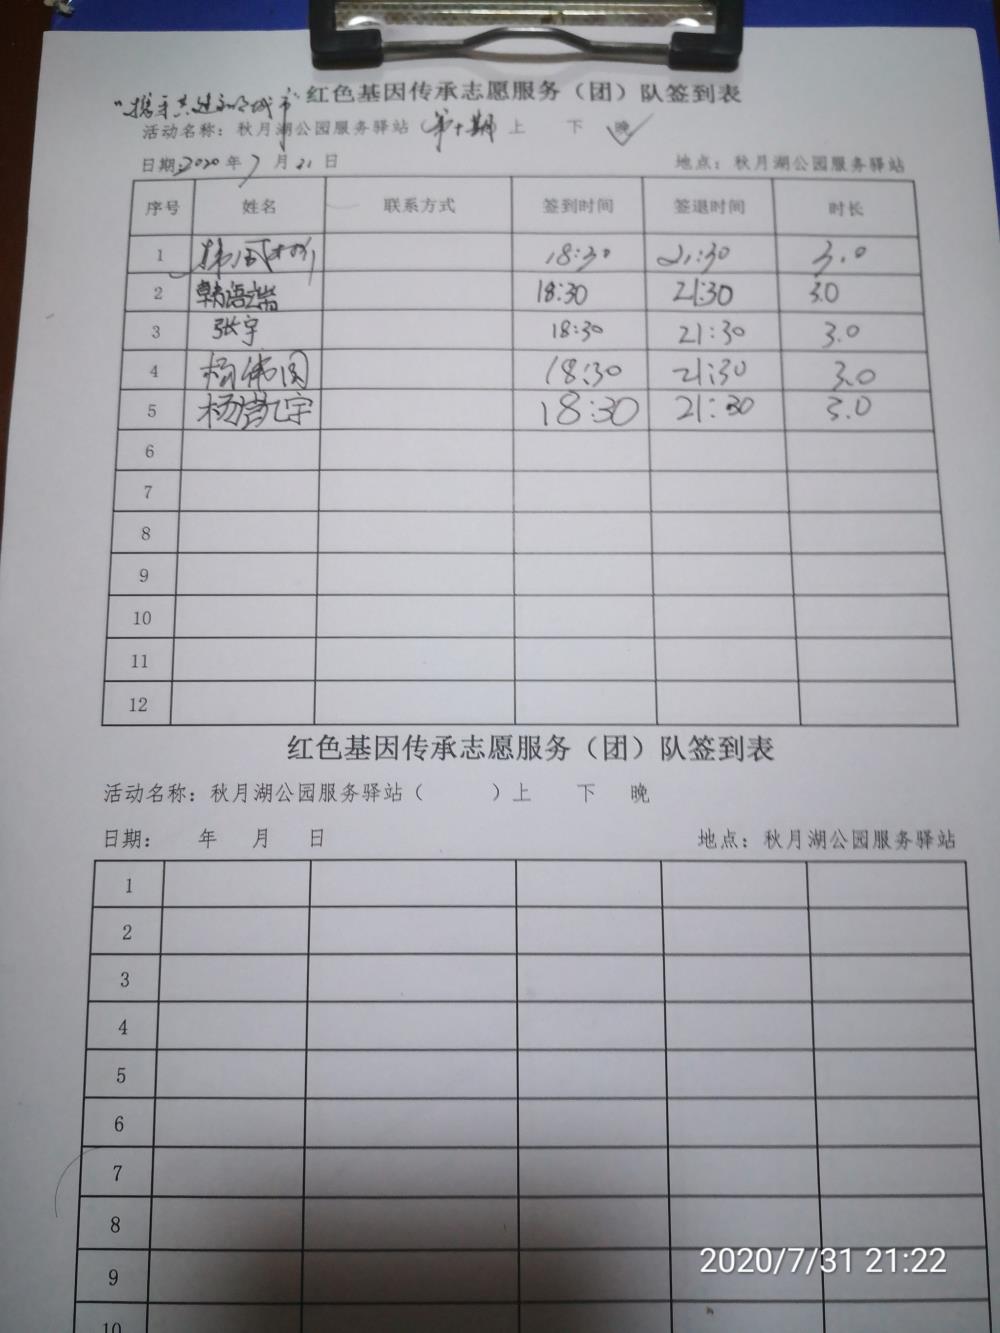 "携手共建文明城市" 红色基因传承志愿服务（团）队签到表
活动名称：秋月湖公园服务驿站（第十期）上 下 晚✓
日期：2020年7月21日 地点：秋月湖公园服务驿站
序号 姓名 联系方式 签到时间 签退时间 时长
1 18:30 21:30 3.0
2 韩语端 18:30 21:30 3.0
3 张宇 18:30 21:30 3.0
4 杨伟国 18:30 21:30 3.0
5 杨凯宇 18:30 21:30 3.0
6
7
8
9
10
11
12
红色基因传承志愿服务（团）队签到表
活动名称：秋月湖公园服务驿站（ ）上 下 晚
日期： 年 月 日 地点：秋月湖公园服务驿站
1
2
3
4
5
6
7
8
9
10
2020/7/31 21:22